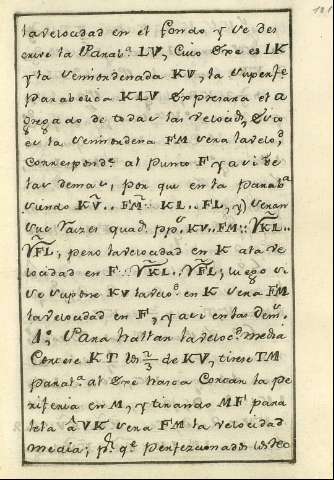 la velocidad en el fondo y se des
crive la Parab.ª LV, cuio Exe es LK
y la semiordenada KV, la superfe
Parabolica KLV Expresara el a
gregado de todas las velocid.
es la semiordena FM sera la veloc.d
correspond.te al punto F y asi de
las demas; por que en la Parab.ª
siendo KV².. FM².. KL.. FL, y seran
sus raizes quad. pp.s KV.. FM :: √KL..
√FL; pero la velocidad en K a la ve
locidad en F :: √KL.. √FL; luego si
se supone KV la velo.d en K sera FM
la velocidad en F, y asi en las dem.s
1.ª Para hallar la veloc.d media
Cortese KT los 2/3 de KV, tirese TM
paral.ª al Exe hasta Cortar la Pe
riferia en M, y tirando MF para
lela à VK sera FM la velocidad
media; p.r q.e